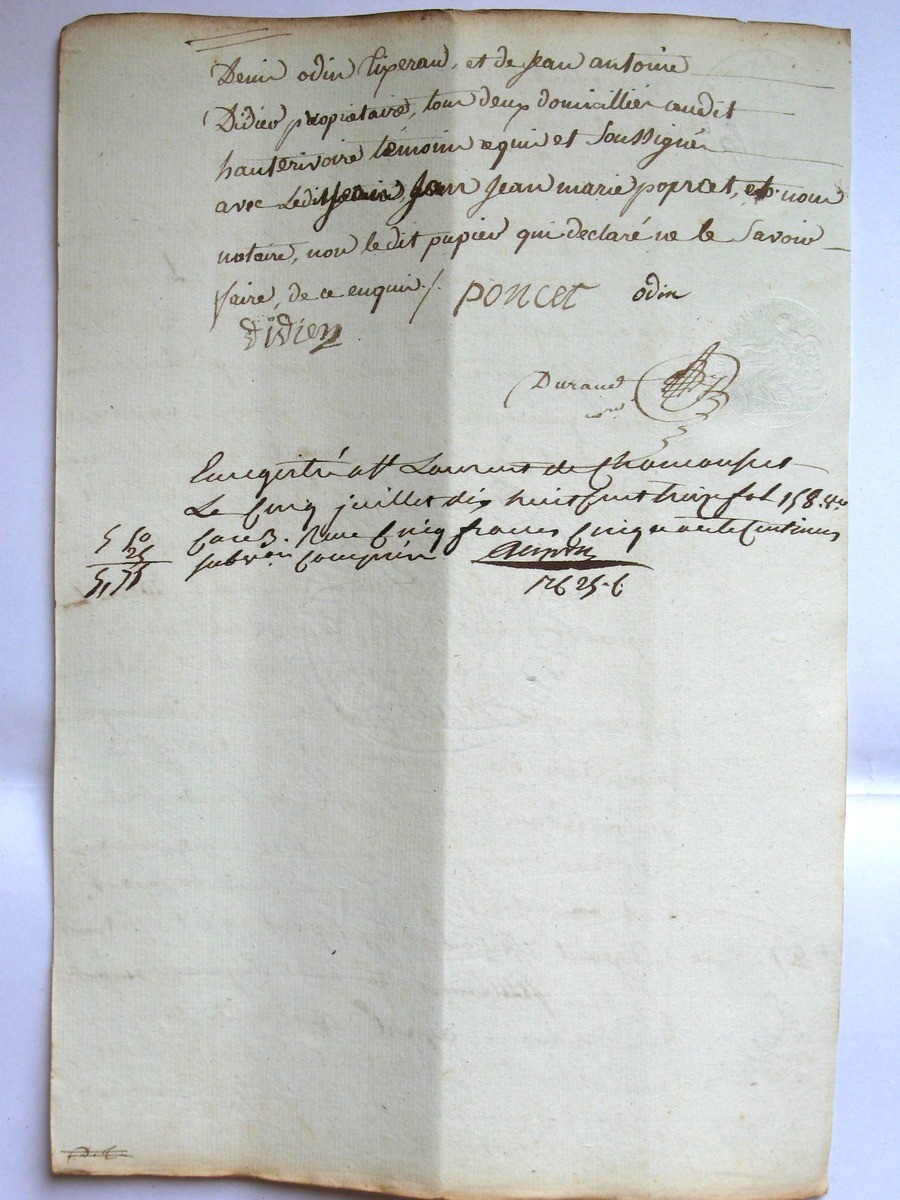 Denis odin tixeran, et de Jean antoine
Didier propriétaire, tous deux domicilliés audit
hauterivoire témoins requis et soussignés
avec Ledit Jean marie poncet, et nous
notaire, non le dit pupier qui declaré ne le savoir
faire, de ce enquis ./.
poncet odin
didier
Durand
Enregistré a St Laurent de Chamousset
Le Cinq juillet dix huit cent treize fol 158
Case 3. Reçu Cinq francs Cinquante Centimes
subvon Comprise
5 50
25
5,75